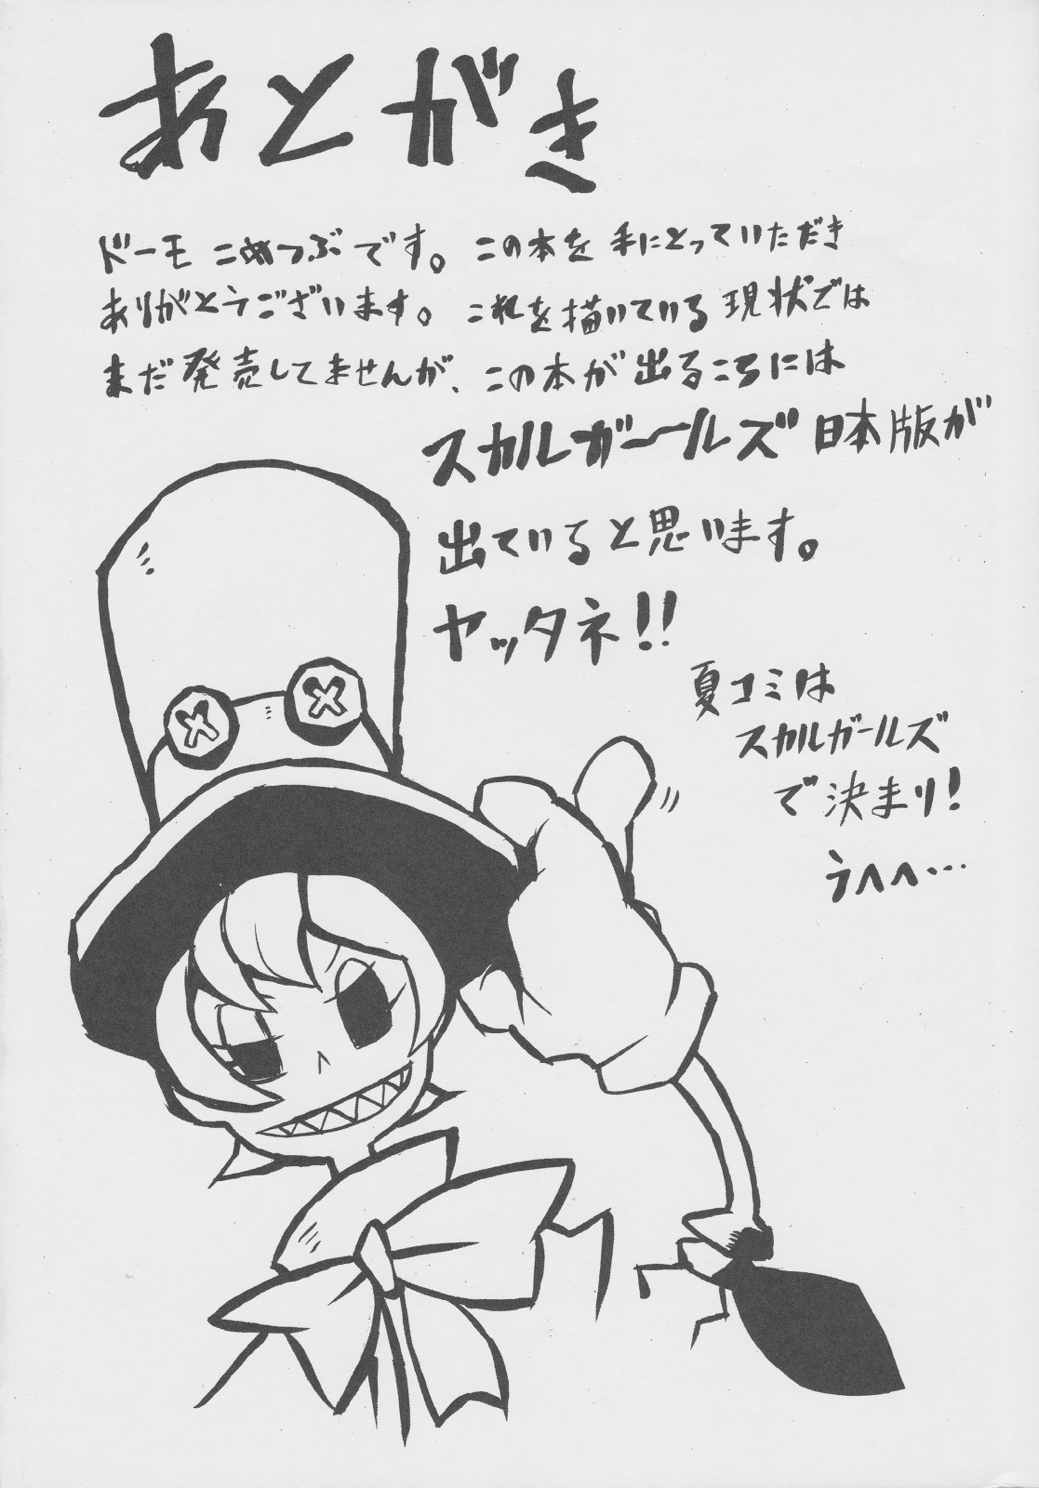 あとがき
ドーモ こめつぶです。この本を 手にとっていただき
ありがとうございます。これを描いている現状では
まだ発売してませんが、この本が出るころには
スカルガールズ日本版が
出ていると思います。
ヤッタネ!!
夏コミは
スカルガールズ
で決まり!
うへへ…